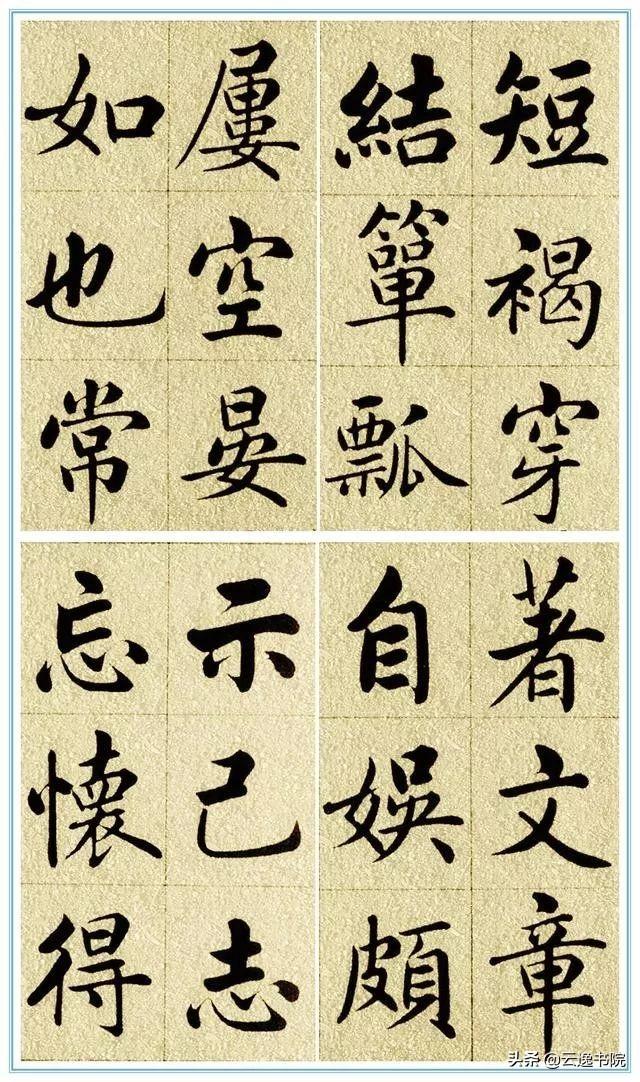 短褐穿
結簞瓢
屢空晏
如也常
著文章
自娛頗
示己志
忘懷得
头条 @云逸书院